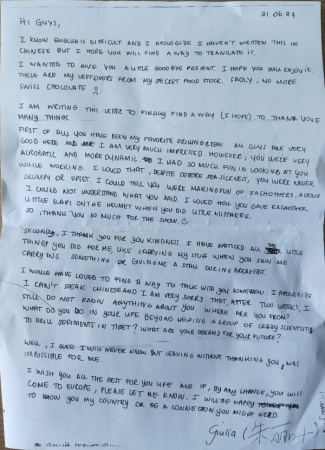 21.06.24
HI GUYS,
I KNOW ENGLISH IS DIFFICULT AND I APOLOGIZE I HAVEN'T WRITTEN THIS IN
CHINESE BUT I HOPE YOU WILL FIND A WAY TO TRANSLATE IT.
I WANTED TO GIVE YOU A LITTLE GOODBYE PRESENT. I HOPE YOU WILL ENJOY IT.
THESE ARE MY LEFTOVERS FROM MY SECRET FOOD STOCK. SADLY, NO MORE
SWISS CHOCOLATE
I AM WRITING THIS LETTER TO FINALLY FIND A WAY (I HOPE) TO THANK YOU FOR
MANY THINGS
FIRST OF ALL YOU HAVE BEEN MY FAVORITE DRILLING CREW. ALL GUYS ARE VERY
GOOD HERE AND I AM VERY MUCH IMPRESSED. HOWEVER, YOU WERE VERY
ACROBATIC AND MORE DYNAMIC. I HAD SO MUCH FUN IN LOOKING AT YOU
WHILE WORKING. I LOVED THAT, DESPITE SICKNESS, YOU WERE NEVER
GRUMPY OR UPSET. I COULD TELL YOU WERE MAKING FUN OF EACHOTHERS, ALTHOUGH
I COULD NOT UNDERSTAND WHAT YOU SAID. I LOVED HOW YOU GAVE EACHOTHER
LITTLE SLAPS ON THE HELMET WHEN YOU DID LITTLE MISTAKES.
SO, THANK YOU SO MUCH FOR THE SHOW.
SECONDLY, I THANK YOU FOR YOU KINDNESS. I HAVE NOTICED ALL LITTLE
THINGS YOU DID FOR ME LIKE CARRYING MY STUFF WHEN YOU SAW ME
CARRYING SOMETHING OR GIVING ME A DURING BREAKFAST.
I WOULD HAVE LOVED TO FIND A WAY TO TALK WITH YOU SOMEHOW. I APOLOGIZE
I CAN'T SPEAK CHINESE AND I AM VERY SORRY THAT AFTER TWO WEEKS, I
STILL DO NOT KNOW ANYTHING ABOUT YOU. WHERE ARE YOU FROM?
WHAT DO YOU DO IN YOUR LIFE BEYOND HELPING A GROUP OF CRAZY SCIENTISTS
TO DRILL SEDIMENTS IN TIBET? WHAT ARE YOUR DREAMS FOR YOUR FUTURE?
WELL, I GUESS I WILL NEVER KNOW BUT LEAVING WITHOUT THANKING YOU, WAS
IMPOSSIBLE FOR ME.
I WISH YOU ALL THE BEST FOR YOU LIFE AND IF, BY ANY CHANCE, YOU WILL
COME TO EUROPE, PLEASE LET ME KNOW. I WILL BE HAPPY
TO SHOW YOU MY COUNTRY OR BE A CONNECTION YOU MIGHT NEED
Giulia